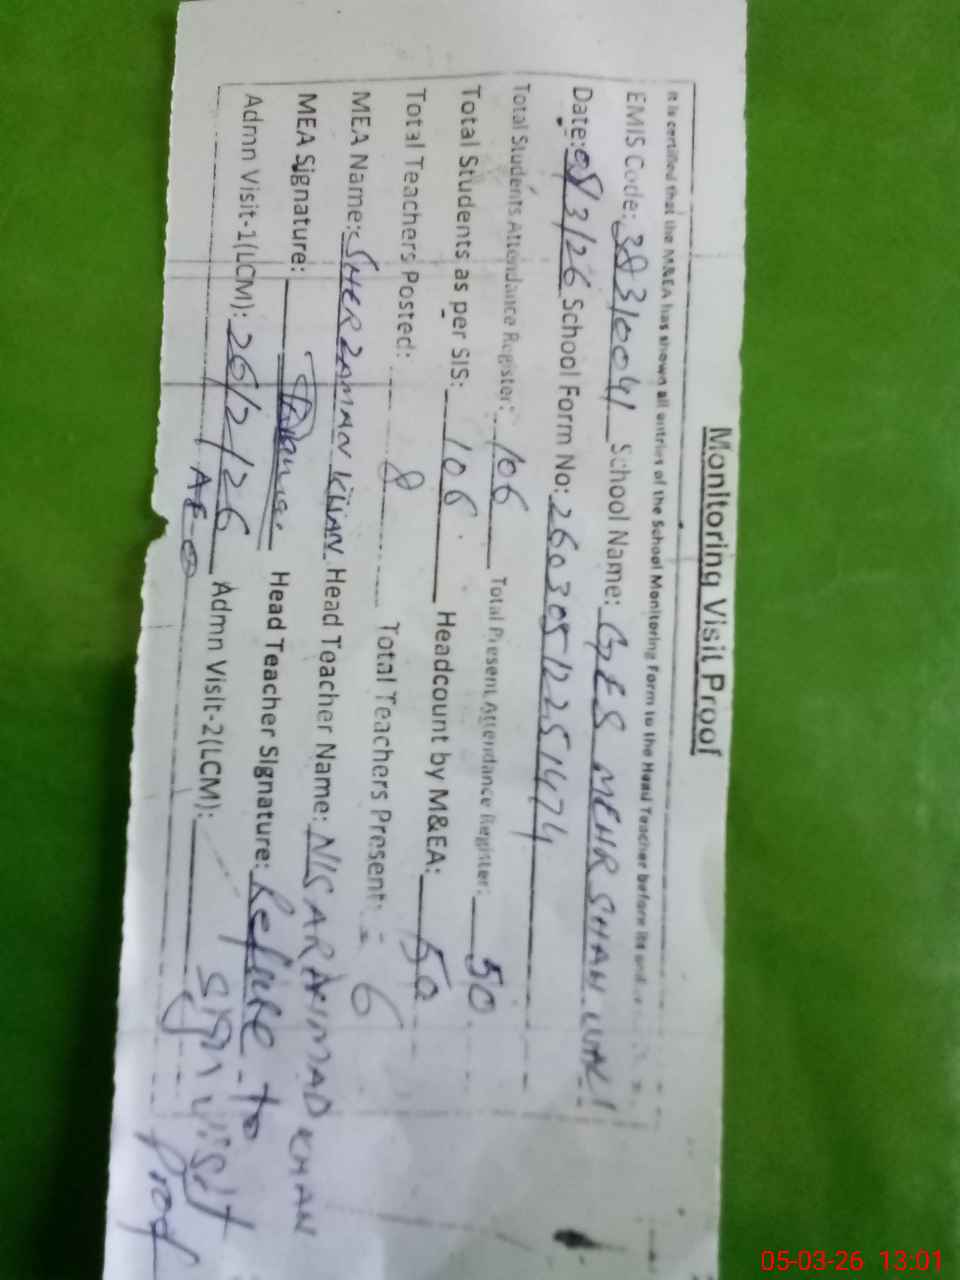 Monitoring Visit Proof
It is certified that the M&EA has shown all entries of the School Monitoring Form to the Head Teacher before its
EMIS Code: 38310041 School Name: GES MEHR SHAH WALI
Date: 05/3/26 School Form No: 26030512251474
Total Students Attendance Register: 106 Total Present Attendance Register: 50
Total Students as per SIS: 106 Headcount by M&EA: 50
Total Teachers Posted: 8 Total Teachers Present: 6
MEA Name: SHER ZAMAN KHAN Head Teacher Name: NISAR AHMAD KHAN
MEA Signature: Head Teacher Signature: Refuse to sign visit proof
Admn Visit-1(LCM): 26/2/26 Admn Visit-2(LCM):
AEO
05-03-26 13:01